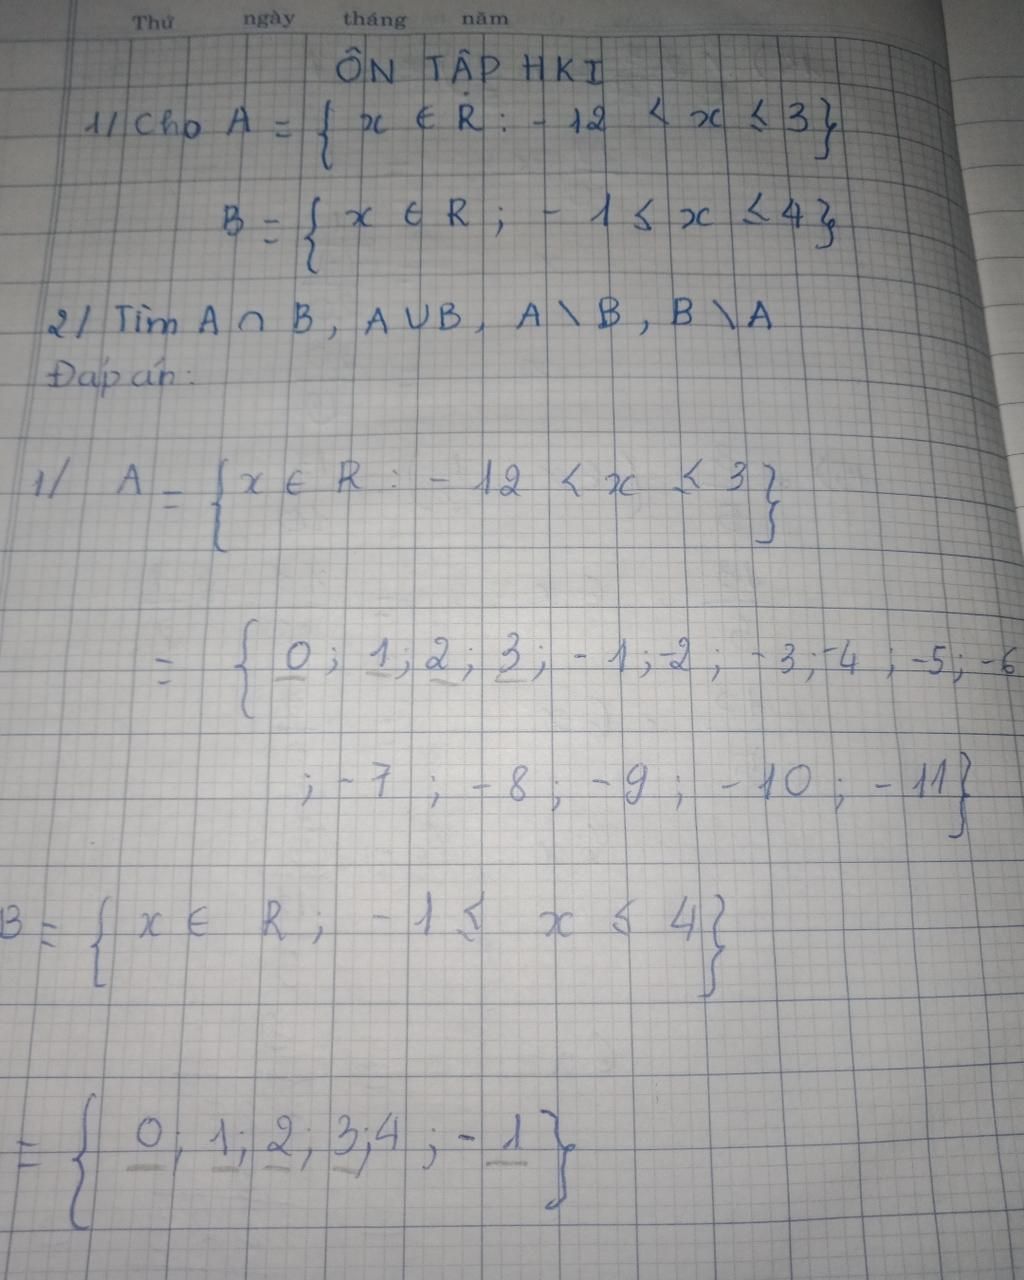 Thứ ngày tháng năm
ÔN TẬP HKI
1/ Cho A = { x ∈ R : - 12 < x ≤ 3}
B = { x ∈ R ; - 1 ≤ x ≤ 4}
2/ Tìm A ∩ B, A ∪ B, A \ B, B \ A
Đáp án:
1/ A = { x ∈ R : - 12 < x ≤ 3 }
= { 0 ; 1 ; 2 ; 3 ; - 1 ; -2 ; - 3 ; -4 ; -5 ; -6
; - 7 ; - 8 ; - 9 ; - 10 ; - 11}
B = { x ∈ R ; - 1 ≤ x ≤ 4 }
= { 0 ; 1 ; 2 ; 3 ; 4 ; - 1 }